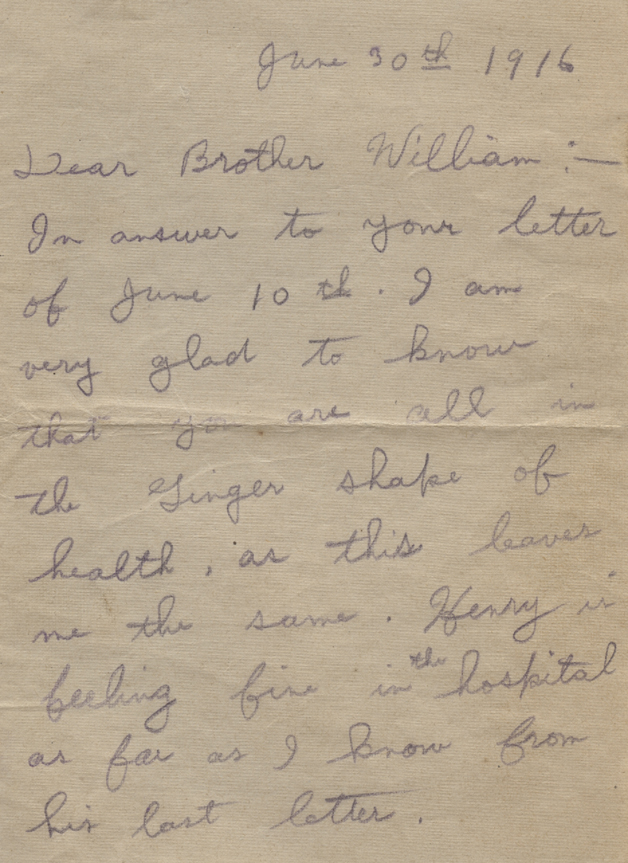 June 30th 1916
Dear Brother William :—
In answer to your letter
of June 10 th. I am
very glad to know
that you are all in
the Ginger shape of
health, as this leaves
me the same. Henry is
feeling fine in the hospital
as far as I know from
his last letter.